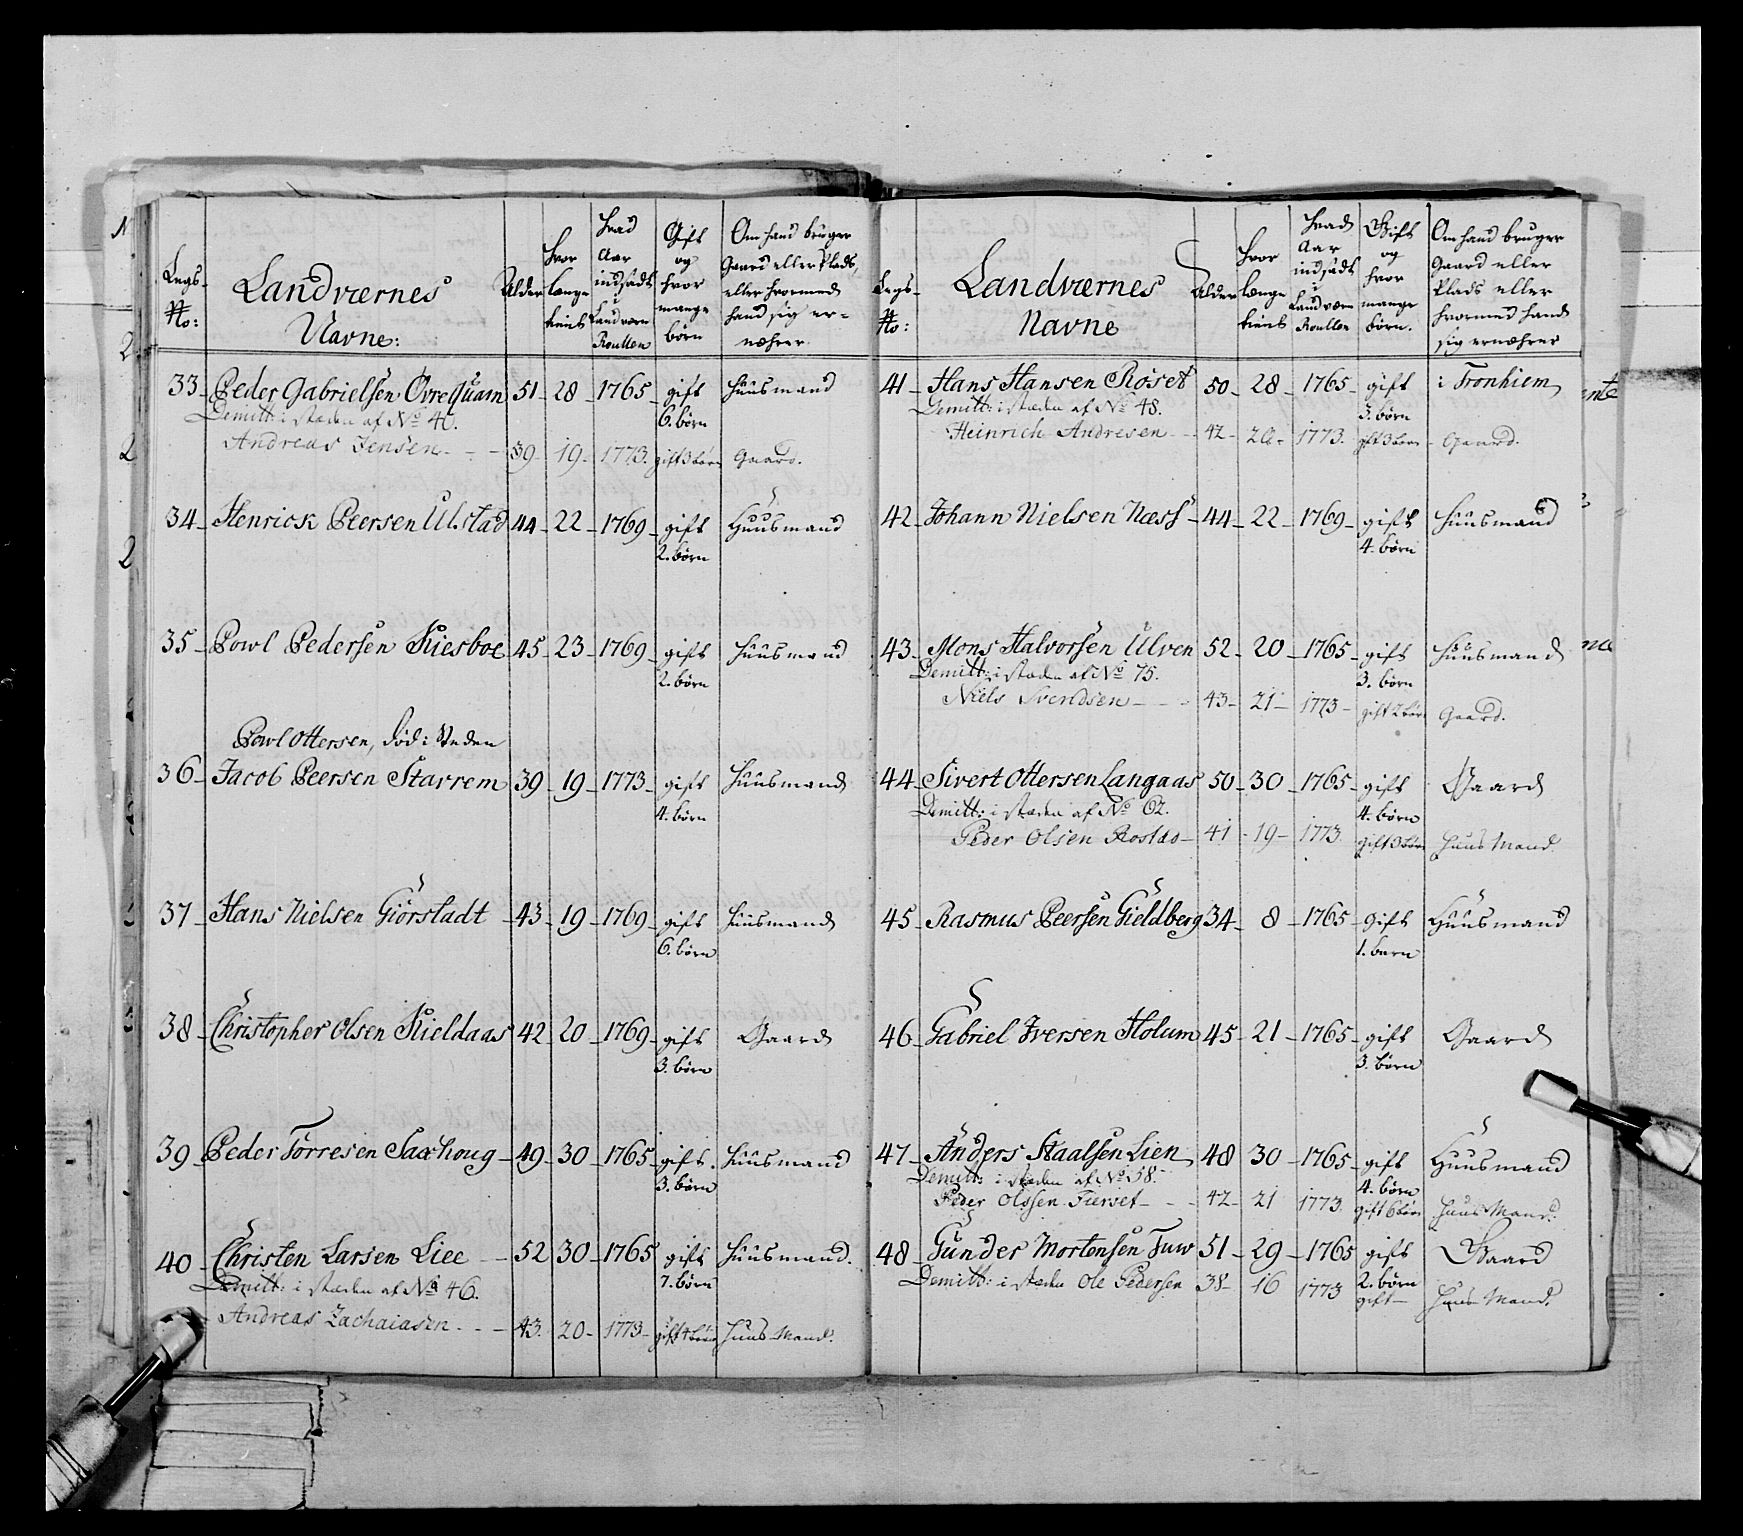 Legs No:
Landværnes Navne:
Alder
hvor længe tient
hvad Aar indsadt i Landværn Roullen
Gift og hvor mange børn
Om hand bruger Gaard eller Plads, eller hvormed hand sig ernæhrer
33 Peder Gabrielsen Øvre Quam 51 28 1765 gift 6. børn Huusmand
Demitt: i stæden af No 40.
Andreas Jensen 39 19 1773. gift 3 børn Gaard.
34 Henrick Peersen Ulstad 44 22 1769 gift 2. børn Huusmand
35 Powl Pedersen Kiesboe 45 23 1769 gift 2. børn Huusmand
Powl Ottersen, død i Steden
36 Jacob Peersen Starrem 39 19 1773 gift 4. børn Huusmand
37 Hans Nielsen Giörstadt 43 19 1769 gift 6. børn Huusmand
38 Christopher Olsen Kieldaas 42 20 1769 gift 3. børn Gaard
39 Peder Torresen Saxhoug 49 30 1765 gift. 3. børn Huusmand
40 Christen Larsen Liee 52 30 1765 gift 7. børn Huusmand.
Demitt: i stæden af No 46.
Andreas Zachaiasen 43. 20 1773 gift 4 børn Huus Mand.
Legs No:
Landværnes Navne
Alder
hvor længe tient
hvad Aar indsadt i Landværn Roullen
Gift og hvor mange børn.
Om hand bruger Gaard eller Plads eller hvormed hand sig ernæhrer
41 Hans Hansen Röset 50 28 1765 gift 3. børn i Tronhiem
Demitt: i stæden af No 48.
Heinrich Andresen 42 20 1773. gift 3 børn Gaard.
42 Johann Nielsen Næss 44 22 1769 gift 4. børn Huusmand
43 Mons Halvorsen Ulven 52 20 1765 gift 3. børn Huusmand
Demitt: i stæden af No 75.
Niels Svendsen 43 21 1773 gift 2 børn Gaard.
44 Sivert Ottersen Langaas 50 30 1765 gift 4. børn Gaard
Demitt: i stæden af No 62.
Peder Olsen Rostad 41 19 1773. gift 3 børn Huus Mand.
45 Rasmus Peersen Gieldberg 34 8 1765 Gift 1. barn Huusmand
46 Gabriel Iversen Holum 45 21 1765 gift 3. børn Gaard
47 Anders Staalsen Lien 48 30 1765 gift 4. børn Huusmand
Demitt: i stæden af No 58.
Peder Olssen 42 21 1773. gift 6 børn Huus Mand.
48 Gunder Mortensen Tuw 51 29 1765 gift 2. børn Gaard
Demitt: i stæden Ole Pedersen 38 16 1773 gift Huus Mand.